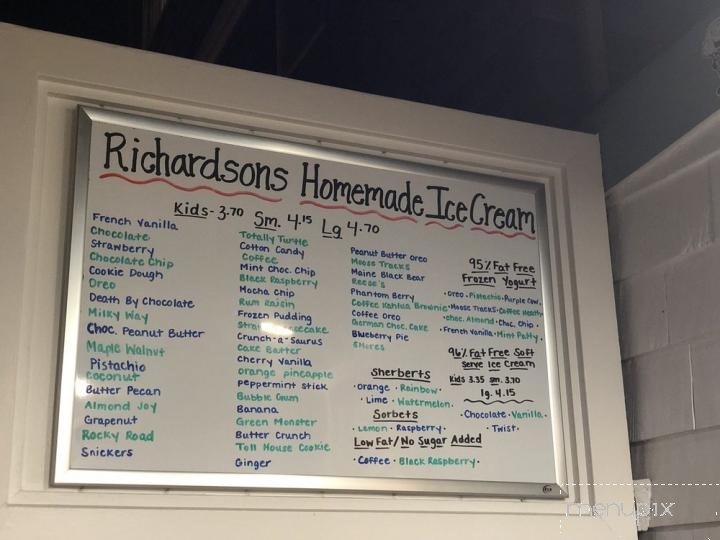 Richardsons Homemade Ice Cream
Kids - 3.70 Sm. 4.15 Lg 4.70
French Vanilla
Chocolate
Strawberry
Chocolate Chip
Cookie Dough
Oreo
Death By Chocolate
Milky Way
Choc. Peanut Butter
Maple Walnut
Pistachio
Coconut
Butter Pecan
Almond Joy
Grapenut
Rocky Road
Snickers
Totally Turtle
Cotton Candy
Coffee
Mint Choc. Chip
Black Raspberry
Mocha Chip
Rum Raisin
Frozen Pudding
Crunch-a-Saurus
Cake Batter
Cherry Vanilla
orange pineapple
peppermint stick
Bubble Gum
Banana
Green Monster
Butter Crunch
Toll House Cookie
Ginger
Peanut Butter Oreo
Moose Tracks
Maine Black Bear
Reese's
Phantom Berry
Coffee Kahlua Brownie
Coffee Oreo
German Choc. Cake
Blueberry Pie
SMores
Sherberts
• orange • Rainbow •
• Lime • Watermelon
Sorbets
• Lemon • Raspberry •
Low Fat/No Sugar Added
• Coffee • Black Raspberry •
95% Fat Free
Frozen Yogurt
• Oreo • Pistachio • Purple Cow •
• Moose Tracks • Coffee Heath
• choc. Almond • Choc. Chip •
• French Vanilla • Mint Patty •
96% Fat Free Soft
Serve Ice Cream
Kids 3.35 sm. 3.70
lg. 4.15
• Chocolate • Vanilla •
• Twist •
menupix